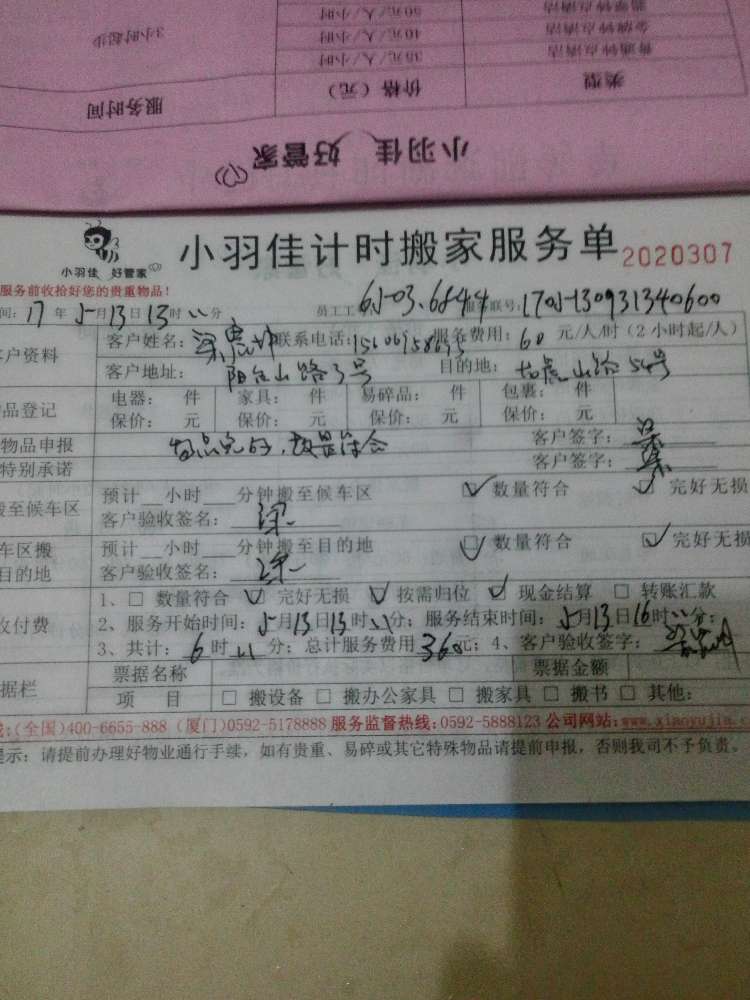 3小时起步
50元/人/小时
翡翠钟点清洁
40元/人/小时
金牌钟点清洁
35元/人/小时
普通钟点清洁
服务时间
价格（元）
类型
小羽佳 好管家
小羽佳 好管家
小羽佳计时搬家服务单 2020307
服务前收拾好您的贵重物品！
间：17年5月13日13时00分 员工工 联号：
客户资料 客户姓名： 联系电话： 服务费用：60元/人/时（2小时起/人）
客户地址： 山路3号 目的地： 山路 号
品登记 电器： 件 家具： 件 易碎品： 件 包裹： 件
保价： 元 保价： 元 保价： 元 保价： 元
物品申报 物品完好，数量符合 客户签字：梁
特别承诺 客户签字：梁
搬至候车区 预计__小时__分钟搬至候车区 数量符合 完好无损
客户验收签名：梁
车区搬 预计__小时__分钟搬至目的地 数量符合 完好无损
目的地 客户验收签名：梁
收付费 1、□ 数量符合 完好无损 按需归位 现金结算 □ 转账汇款
2、服务开始时间：5月13日13时00分；服务结束时间：5月13日16时00分；
3、共计：6时00分；总计服务费用360元；4、客户验收签字：
据栏 票据名称 票据金额
项 目 □ 搬设备 □ 搬办公家具 □ 搬家具 □ 搬书 □ 其他：
(全国)400-6655-888 (厦门)0592-5178888 服务监督热线:0592-5888123 公司网站:www.xiaoyujia.c
示：请提前办理好物业通行手续，如有贵重、易碎或其它特殊物品请提前申报，否则我司不予负责。